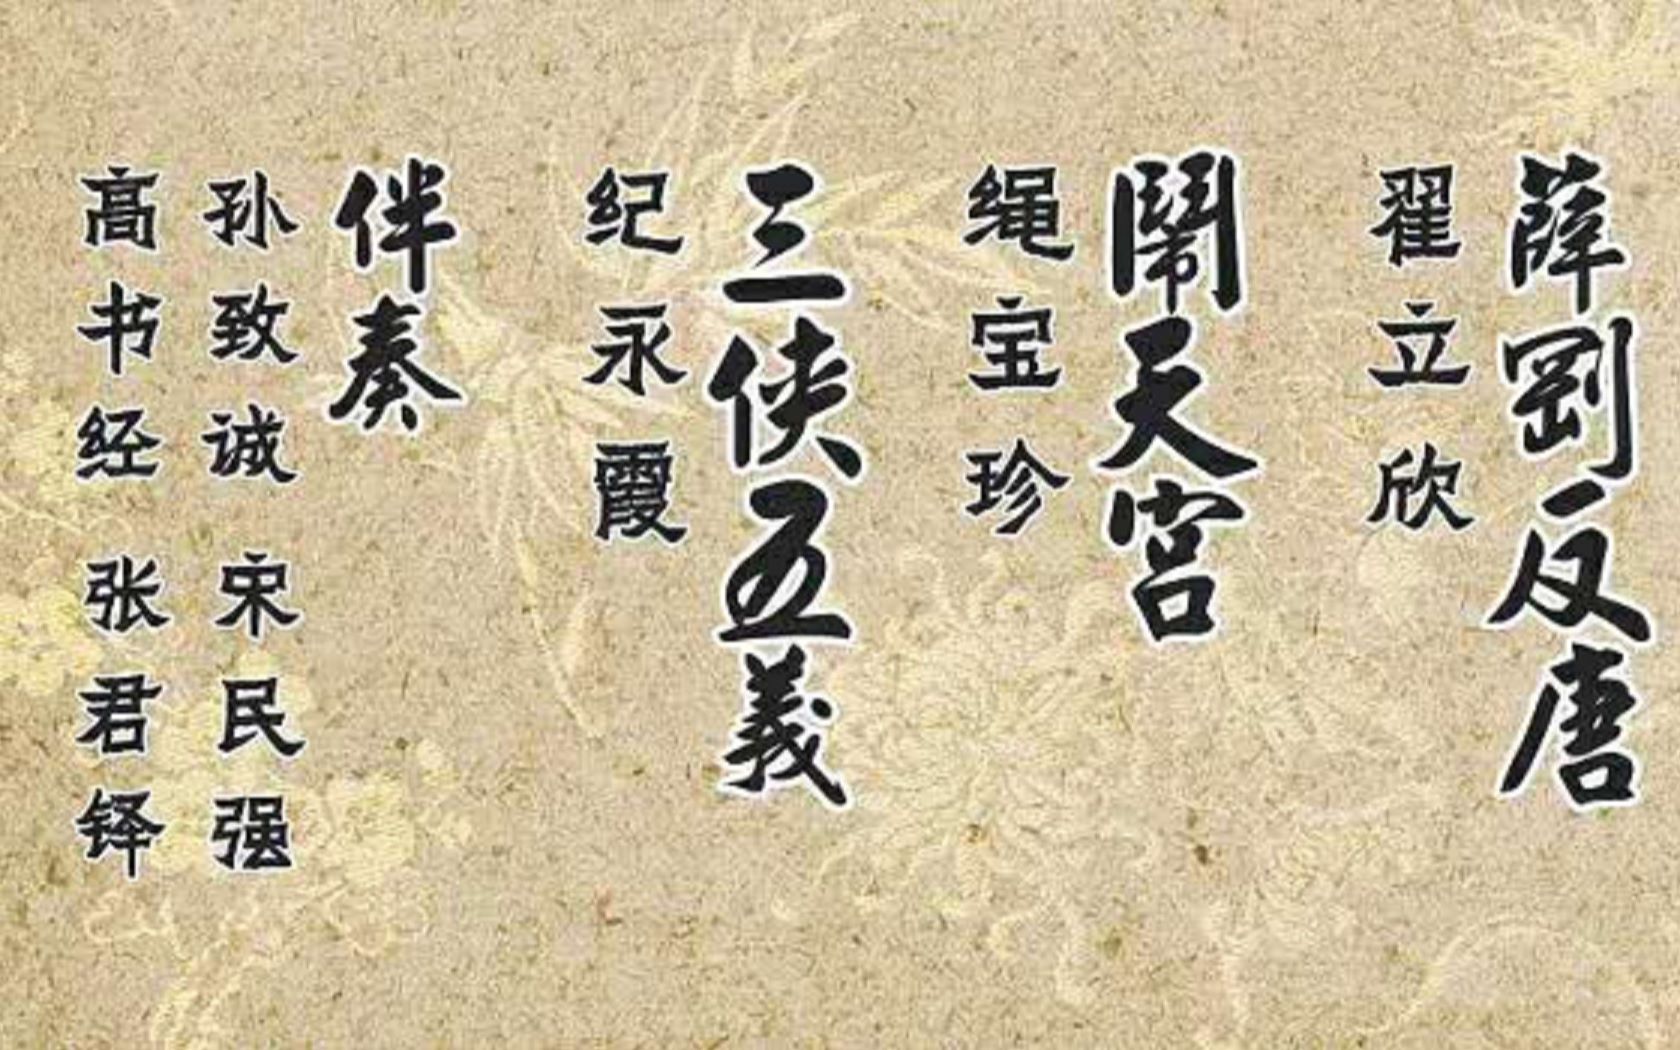 薛剛反唐
翟立欣
鬧天宮
绳宝珍
三侠五義
纪永霞
伴奏
孙致诚 宋民强
高书经 张君铎